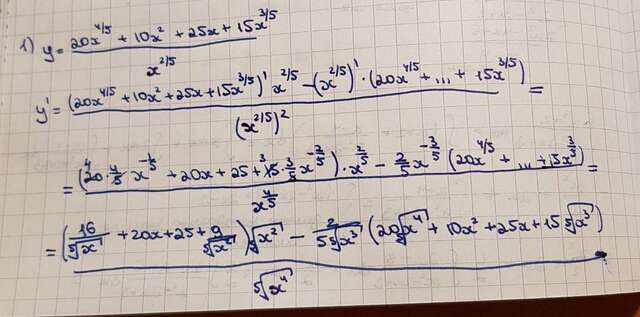 1) y = (20x^(4/5) + 10x² + 25x + 15x^(3/5)) / x^(2/5)
y' = ((20x^(4/5) + 10x² + 25x + 15x^(3/5))' x^(2/5) − (x^(2/5))' · (20x^(4/5) + ... + 15x^(3/5))) / (x^(2/5))² =
= ((⁴20 · 4/5 x^(-1/5) + 20x + 25 + ³15 · 3/5 x^(-2/5)) · x^(2/5) − 2/5 x^(-3/5) (20x^(4/5) + ... + 15x^(3/5))) / x^(4/5) =
= ((16/⁵√x + 20x + 25 + 9/⁵√x²) ⁵√x² − 2/(5 ⁵√x³) (20 ⁵√x⁴ + 10x² + 25x + 15 ⁵√x³)) / ⁵√x⁴